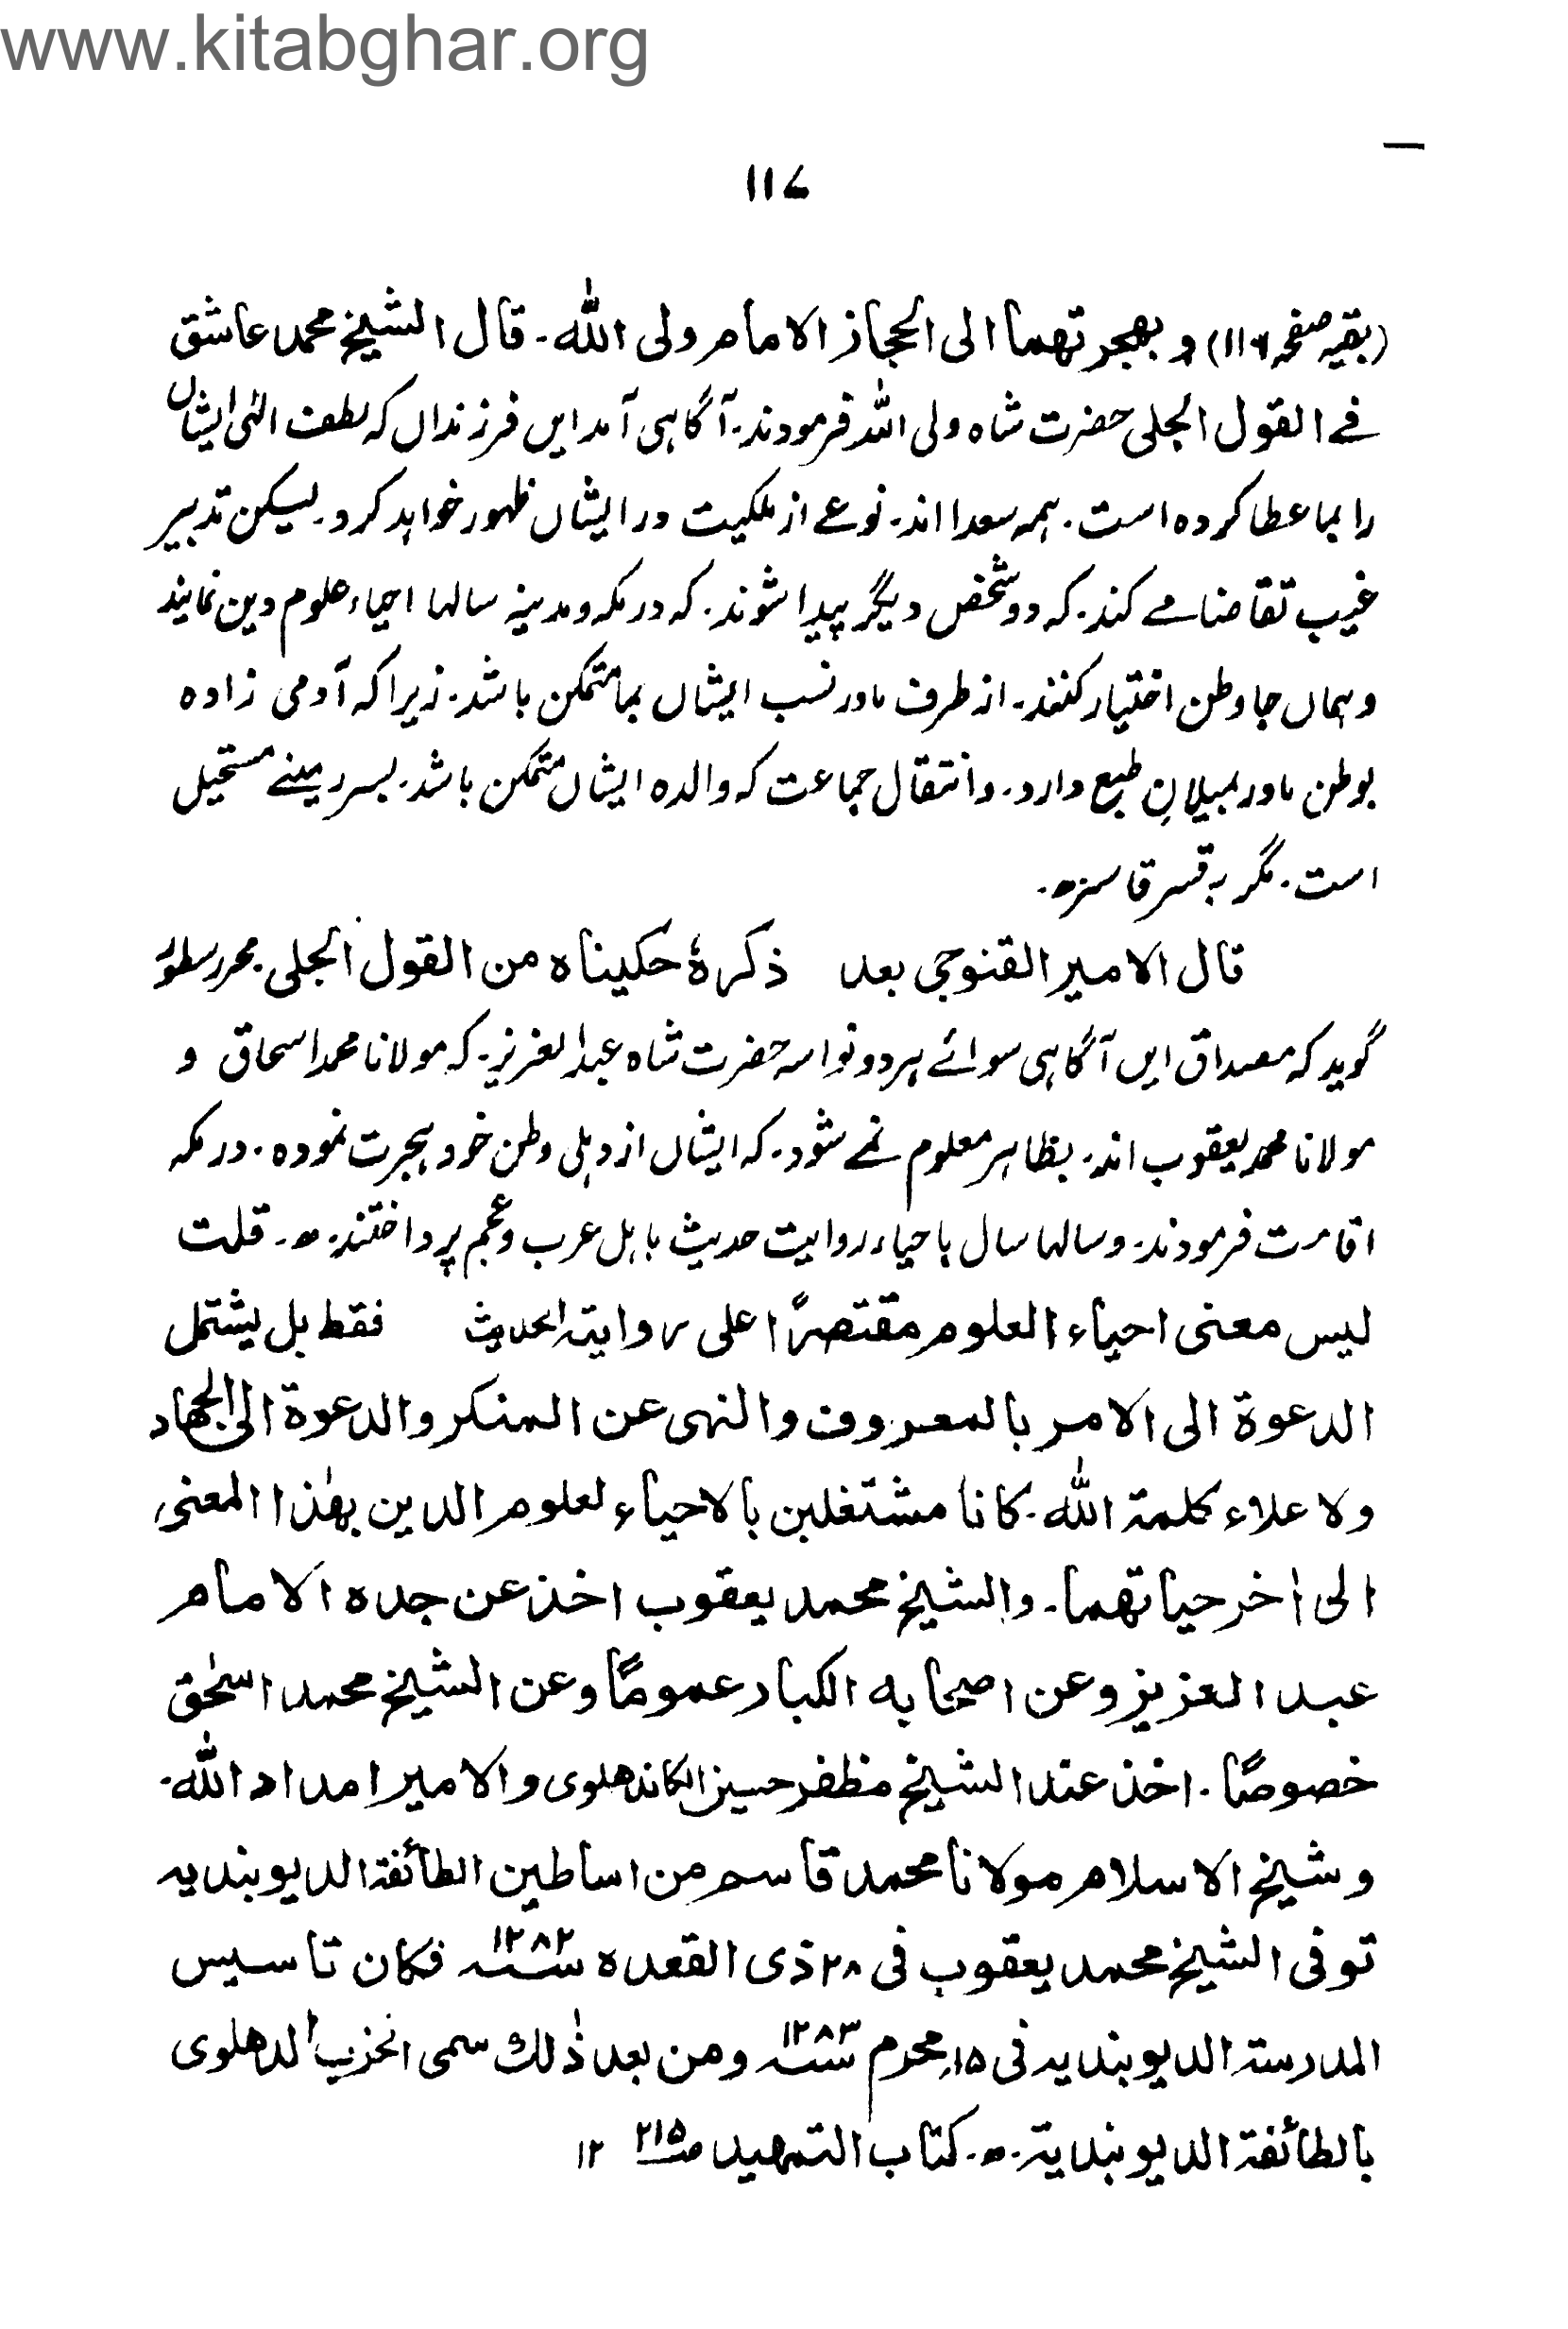 www.kitabghar.org
۱۱۷
(بقیہ صفحہ ۱۱۶) و بھجرتھما الی الحجاز الامام ولی اللّٰہ۔ قال الشیخ محمد عاشق
فے القول الجلی حضرت شاہ ولی اللّٰہ فرمودند۔ آگاہی آمد ایں فرزنداں کہ لطف الٰہی ایشاں
را بما عطا کردہ است۔ ہمہ سعدا اند۔ نوعے از ملکیت در ایشاں ظہور خواہد کرد۔ لیکن تدبیر
غیب تقاضا مے کند۔ کہ دو شخص دیگر پیدا شوند۔ کہ در مکہ و مدینہ سالہا احیاء علوم دین نمایند
و ہماں جا وطن اختیار کنند۔ از طرف مادر نسب ایشاں بما متمکن باشد۔ زیرا کہ آدمی زادہ
بوطن مادر بمیلانِ طبع دارد۔ و انتقال جماعت کہ والدہ ایشاں متمکن باشد۔ بسر زمینے مستحیل
است۔ مگر بہ قسر قاسر ھ۔
قال الامیر القنوجی بعد ذکرہٗ حکیناہ من القول الجلی۔ محرر سطور
گوید کہ مصداق ایں آگاہی سوائے ہر دو نواسہ حضرت شاہ عبد العزیز۔ کہ مولانا محمد اسحاق و
مولانا محمد یعقوب اند۔ بظاہر معلوم نمے شود۔ کہ ایشاں از دہلی وطن خود ہجرت نمودہ۔ در مکہ
اقامت فرمودند۔ و سالہا سال باحیاء روایت حدیث باہل عرب و عجم پرداختند۔ ھ۔ قلت
لیس معنی احیاء العلوم مقتصرًا علی روایۃ الحدیث فقط بل یشتمل
الدعوۃ الی الامر بالمعروف والنہی عن المنکر والدعوۃ الی الجھاد
ولا علاء کلمۃ اللّٰہ۔ کانا مشتغلین بالاحیاء لعلوم الدین بھٰذا المعنی
الی اٰخر حیاتھما۔ والشیخ محمد یعقوب اخذ عن جدہ الامام
عبد العزیز وعن اصحابہ الکبار عمومًا وعن الشیخ محمد اسحٰق
خصوصًا۔ اخذ عند الشیخ مظفر حسین الکاندھلوی والامیر امداد اللّٰہ۔
وشیخ الاسلام مولانا محمد قاسم من اساطین الطائفۃ الدیوبندیہ
توفی الشیخ محمد یعقوب فی ۲۸ ذی القعدہ ۱۲۸۲ سنہ فکان تاسیس
المدرستہ الدیوبندیہ فی ۱۵ محرم ۱۲۸۳ سنہ ومن بعد ذٰلک سمی الحزب الدھلوی
بالطائفۃ الدیوبندیۃ۔ ھ۔ کتاب التمھید ص ۲۱۵ ۱۲